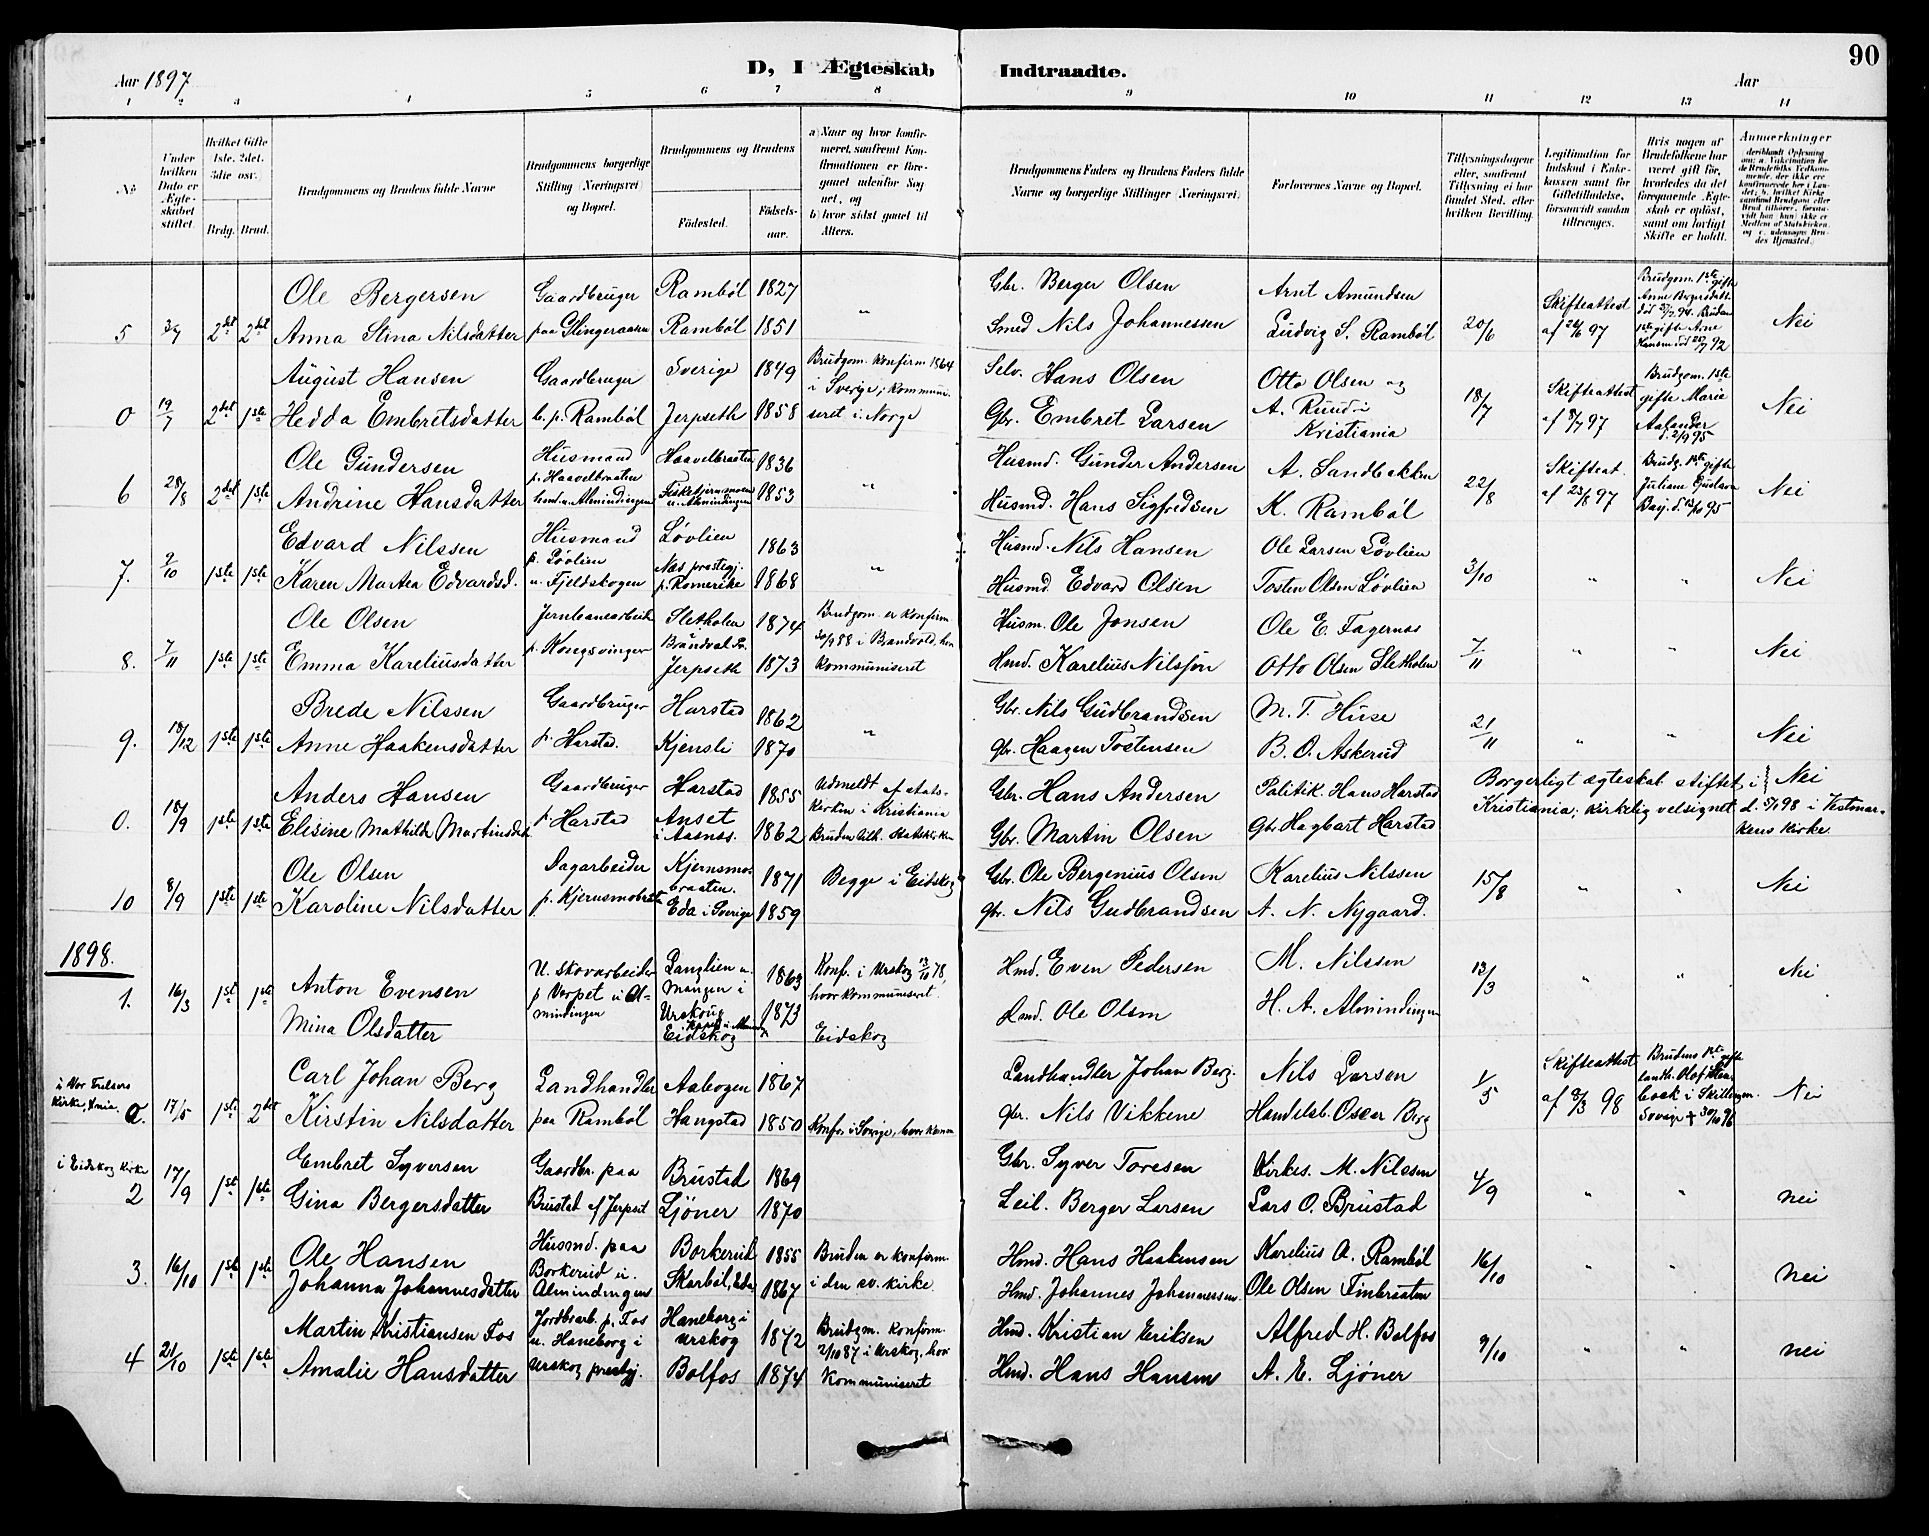 90
Aar 1897
D, I Ægteskab Indtraadte.
Aar
1 2 3 4 5 6 7 8 9 10 11 12 13 14
No
Under hvilken Dato er Ægteskabet stiftet.
Hvilket Gifte 1ste. 2det. 3die osv.
Brdg. Brud.
Brudgommens og Brudens fulde Navne
Brudgommens borgerlige Stilling (Næringsvei) og Bopæl.
Brudgommens og Brudens
Fødested.
Fødselsaar.
a) Naar og hvor konfirmeret, saafremt Konfirmationen er foregaaet udenfor Sognet, og
b) hvor sidst gaaet til Alters.
Brudgommens Faders og Brudens Faders fulde Navne og borgerlige Stillinger (Næringsvei).
Forlovernes Navne og Bopæl.
Tillysningsdagene eller, saafremt Tillysning ei har fundet Sted, efter hvilken Bevilling.
Legitimation for Indskud i Enkekassen samt for Giftetilladelse, forsaavidt saadan tiltrænges.
Hvis nogen af Brudefolkene har været gift før, hvorledes da det foregaaende Ægteskab er opløst, samt om lovligt Skifte er holdt.
Anmerkninger
Ole Bergersen Gaardbruger Rambøl 1827 Gbr. Berger Olsen Arnt Amundsen Skifteattest
5 2det 2det Anna Stina Nilsdatter paa Slingeraasen Rambøl 1851 " Smed Nils Johannessen Ludvig S. Rambøl 20/6 af 26/6 97 Nei
August Hansen Gaardbruger Sverige 1849 Brudgom. konfirm 1864 i Sverige; kommuni- Selv. Hans Olsen Otto Olsen og Skifteattest Brudgom. 1ste gifte Marie
0 19/7 2det 1ste Hedda Embretsdatter b. p. Rambøl Jerpseth 1858 seret i Norge Gbr. Embret Larsen A. Ruud i Kristiania 18/7 af 8/7 97 Nei
Ole Gundersen Husmand p. Haavelbraaten Haavelbraaten 1836 Husmd. Gunder Andersen A. Sandbakken Skifteat. Brudg. 1ste gifte
6 28/8 2det 1ste Andrine Hansdatter 1853 " Husmd. Hans Sigfredsen K. Rambøl 22/8 af 23/8 97 Nei
Edvard Nilssen Husmand Løvlien 1863 Husmd. Nils Hansen Ole Larsen Løvlien
7. 9/10 1ste 1ste Karen Martea Edvardsd. p. Løvlien u. Fjeldskogen Næs prestegj. p. Romerike 1868 " Husmd Edvard Olsen Torsten Olsen Løvlien 3/10 " " Nei
Ole Olsen Jernbanearbeider Sletholen 1874 Brudgom. er konfirm Husm. Ole Jonsen Ole E. Fagernæs
8. 7/11 1ste 1ste Emma Kareliusdatter p. Kongsvinger Jerpseth 1873 i Brandvold, hvor kommuniseret Hmd. Karelius Nilssøn Otto Olsen Sletholen 7/11 " " Nei
Brede Nilssen Gaardbruger Harstad 1862 Gbr. Nils Gudbrandsen M. T. Huse
9. 18/12 1ste 1ste Anne Haakensdatter p. Harstad. Kjensli 1870 " gbr. Haagen Tostensen B. O. Askerud 21/11 " " Nei
Anders Hansen Gaardbruger Harstad 1855 Udmeldt af stats- Gbr. Hans Andersen Politik. Hans Harstad Borgerligt ægteskab stiftet i Nei
0. 18/9 1ste 1ste Elisine Mathilde Martinsdat p. Harstad Anset i Aasnes. 1862 kirken i Kristiania Bruden tilh. Statskirken Gbr. Martin Olsen Gbr Hagbart Harstad Kristiania; kirkelig velsignet d. 5/1 98 i Vestmarkens kirke.
Ole Olsen Dagarbeider Kjernsmobraaten. 1871 Begge i Eidskog Gbr. Ole Bergenius Olsen Karelius Nilssen
10 8/9 1ste 1ste Karoline Nilsdatter p. Kjernsmobraat Eda i Sverige 1859 gbr. Nils Gudbrandsen A. N. Nygaard. 15/8 " " Nei
1898.
1. 16/3 1st 1ste Anton Evensen U. skovarbeider p Verpet i Almindingen Langlien u. Mangen i Urskoug 1863 Konf. i Urskog 13/10 78, hvor kommuniseret. Hmd. Even Pedersen M. Nilssen 13/3 " " Nei
Mina Olsdatter Eidskog 1873 Eidskog Hmd. Ole Olsen H. A. Almindingen
i Vor Frelsers Kirke, Kria. Carl Johan Berg Landhandler Aabogen 1867 Landhandler Johan Berg. Nils Larsen Skifteattest Brudens 1ste gifte
a. 17/5 1st 2det Kirstin Nilsdatter paa Rambøl Hangstad 1850 Konfr. i Sverige, hvor komm gbr. Nils Vikkene Handelsb. Oscar Berg 1/5 af 8/3 98 Sverige † 30/10 96 Nei
i Eidskog kirke Embret Syversen Gaardbr. paa Brustad 1869 Gbr. Syver Toresen Kirkes. M. Nilssen
2 17/9 1st 1ste Gina Bergersdatter Brustad af Jerpset Ljöner 1870 Leil. Berger Larsen Lars O. Brustad 4/9 " " nei
Ole Hansen Husmd. paa Borkerud 1855 Bruden er konfirm. Hmd. Hans Haakensen Karelius A. Rambøl
3. 16/10 1ste 1ste Johanna Johannesdatter Borkerud u. Almindingen Skarbøl, Eda 1867 i den sv. kirke. Hmd. Johannes Johannessen. Ole Olsen Finbraaten 16/10 " " nei
Martin Kristiansen Fos Jordbrarb. p. Fos Haneborg i Urskog 1872 Brudgm. konfirm. 2/10 87 i Urskog, hvor Hmd. Kristian Eriksen Alfred H. Bolfos
4 21/10 1ste 1ste Amalie Hansdatter u. Haneborg i Urskog prestgj. Bolfos 1874 kommuniseret Hmd. Hans Hansen A. E. Ljöner 9/10 " " nei